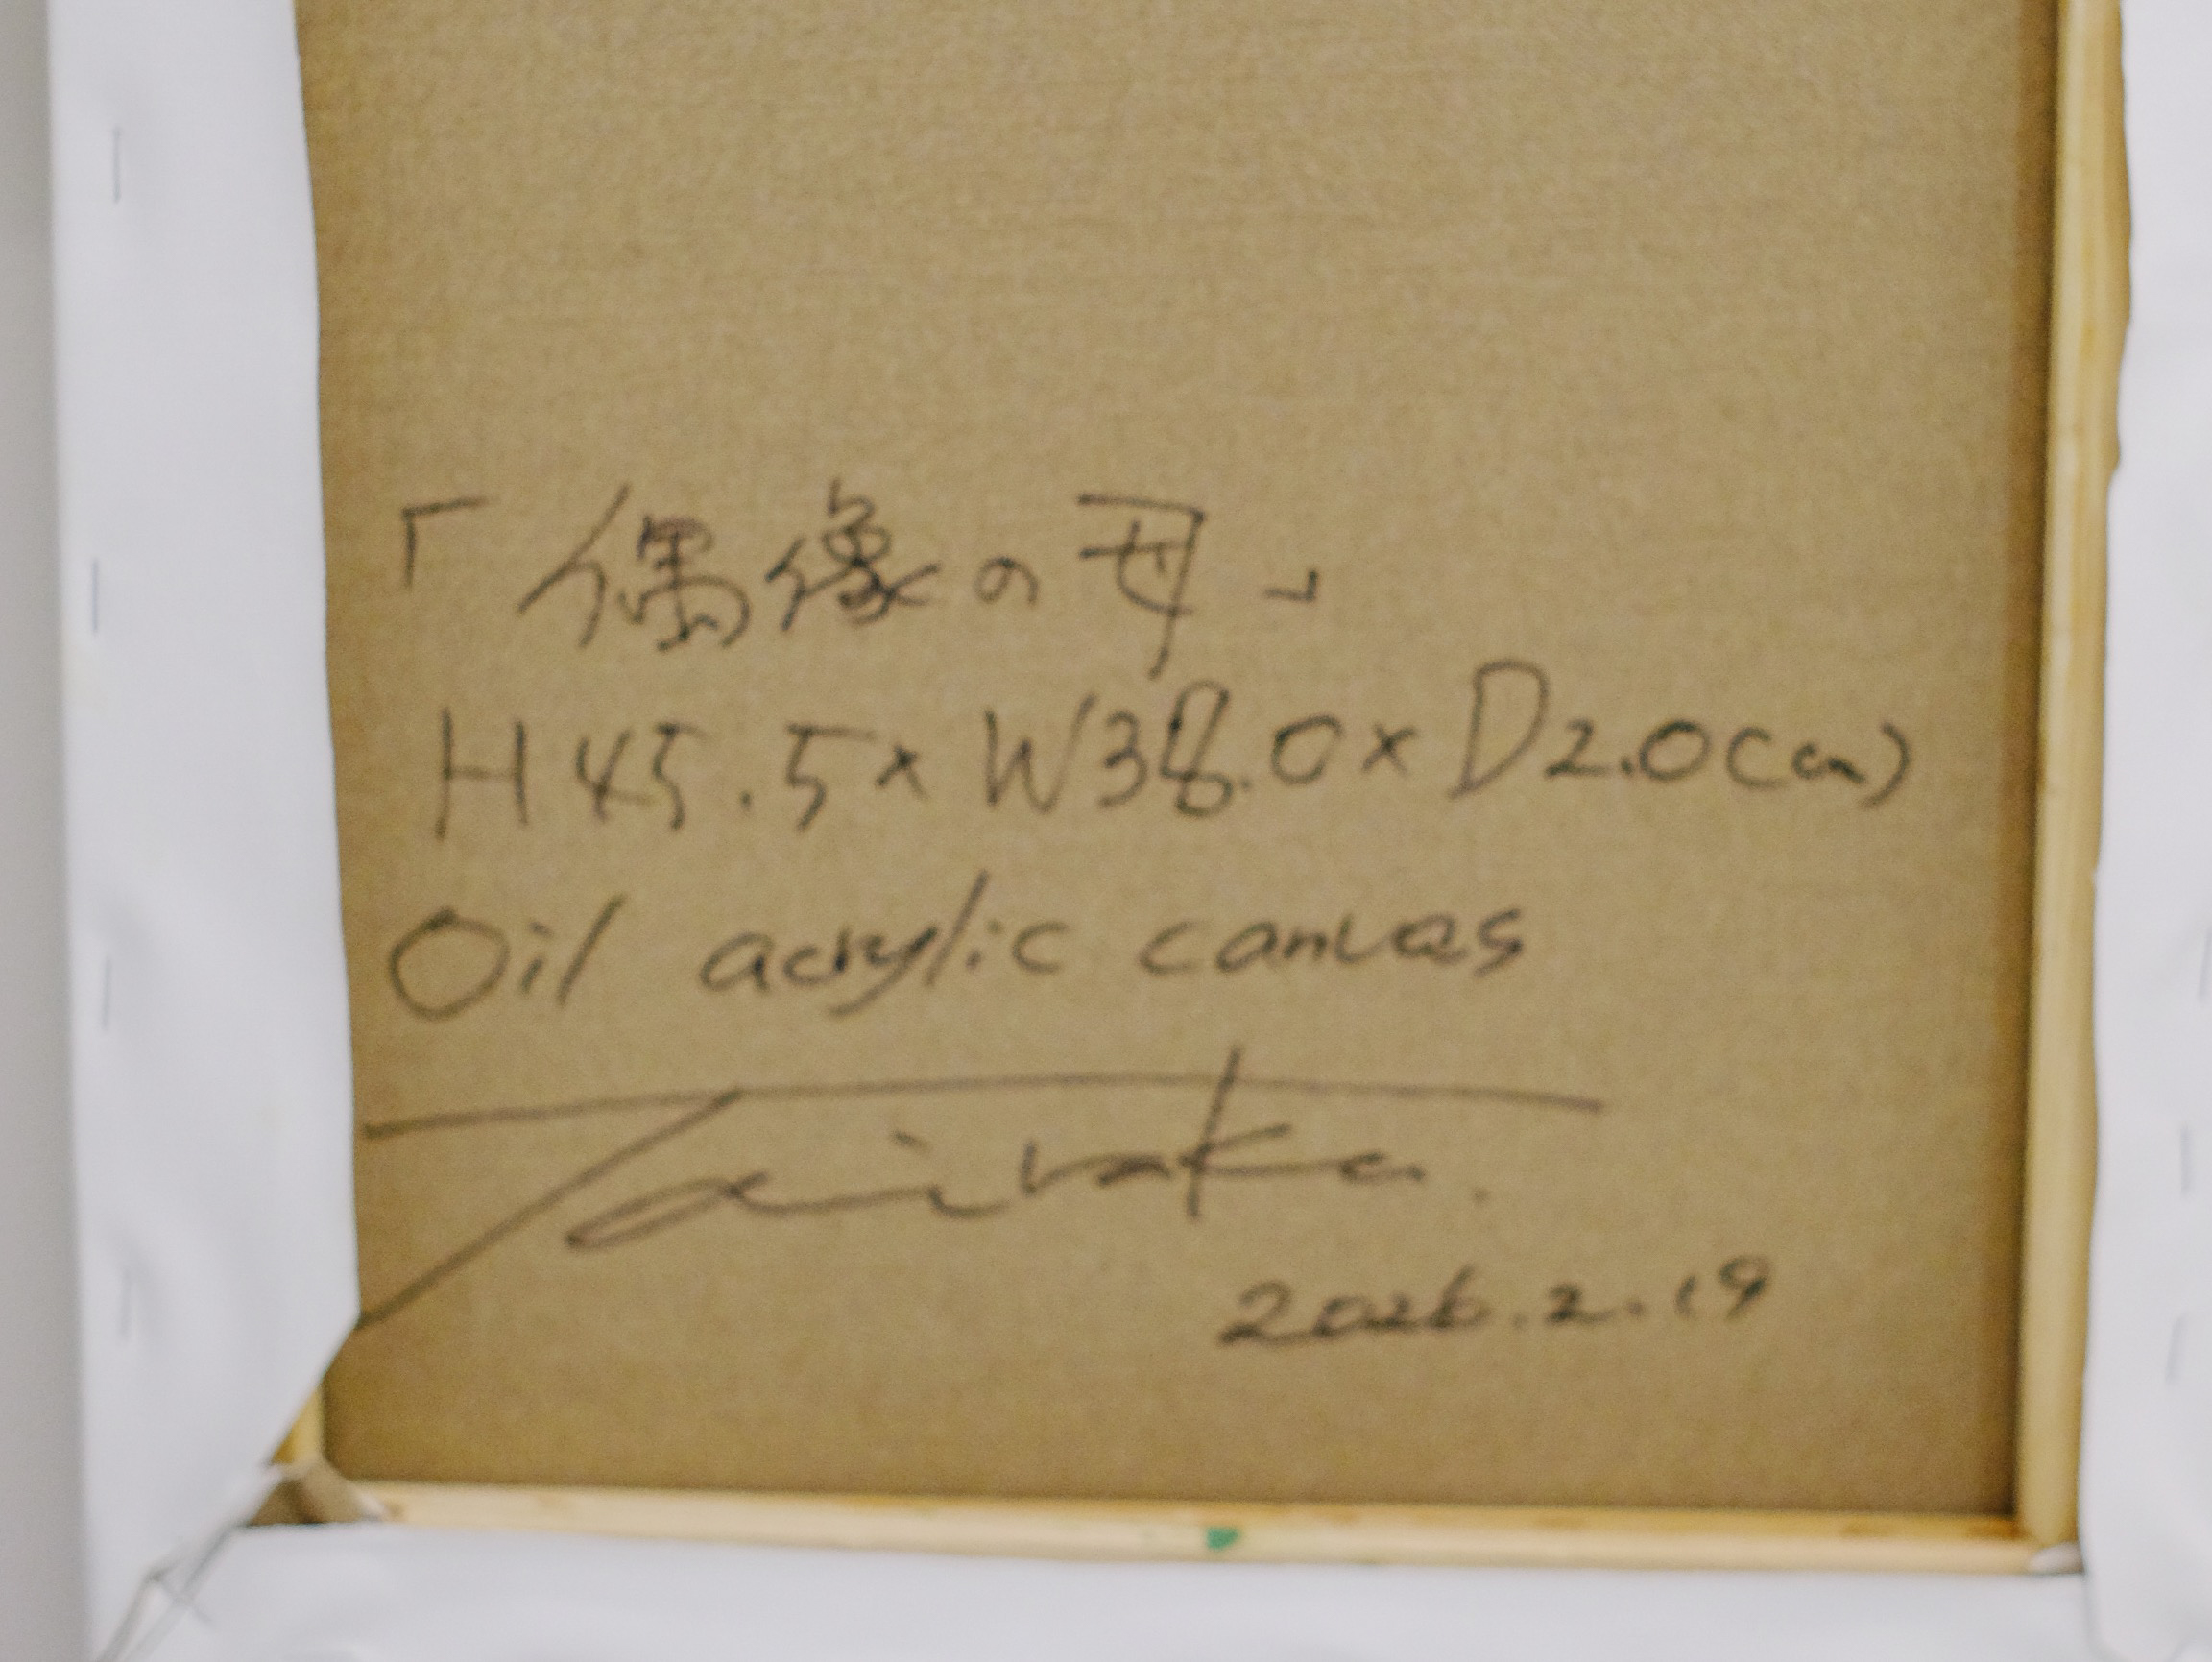 「偶像の母」
H45.5×W38.0×D2.0(cm)
Oil acrylic canvas
2026.2.19